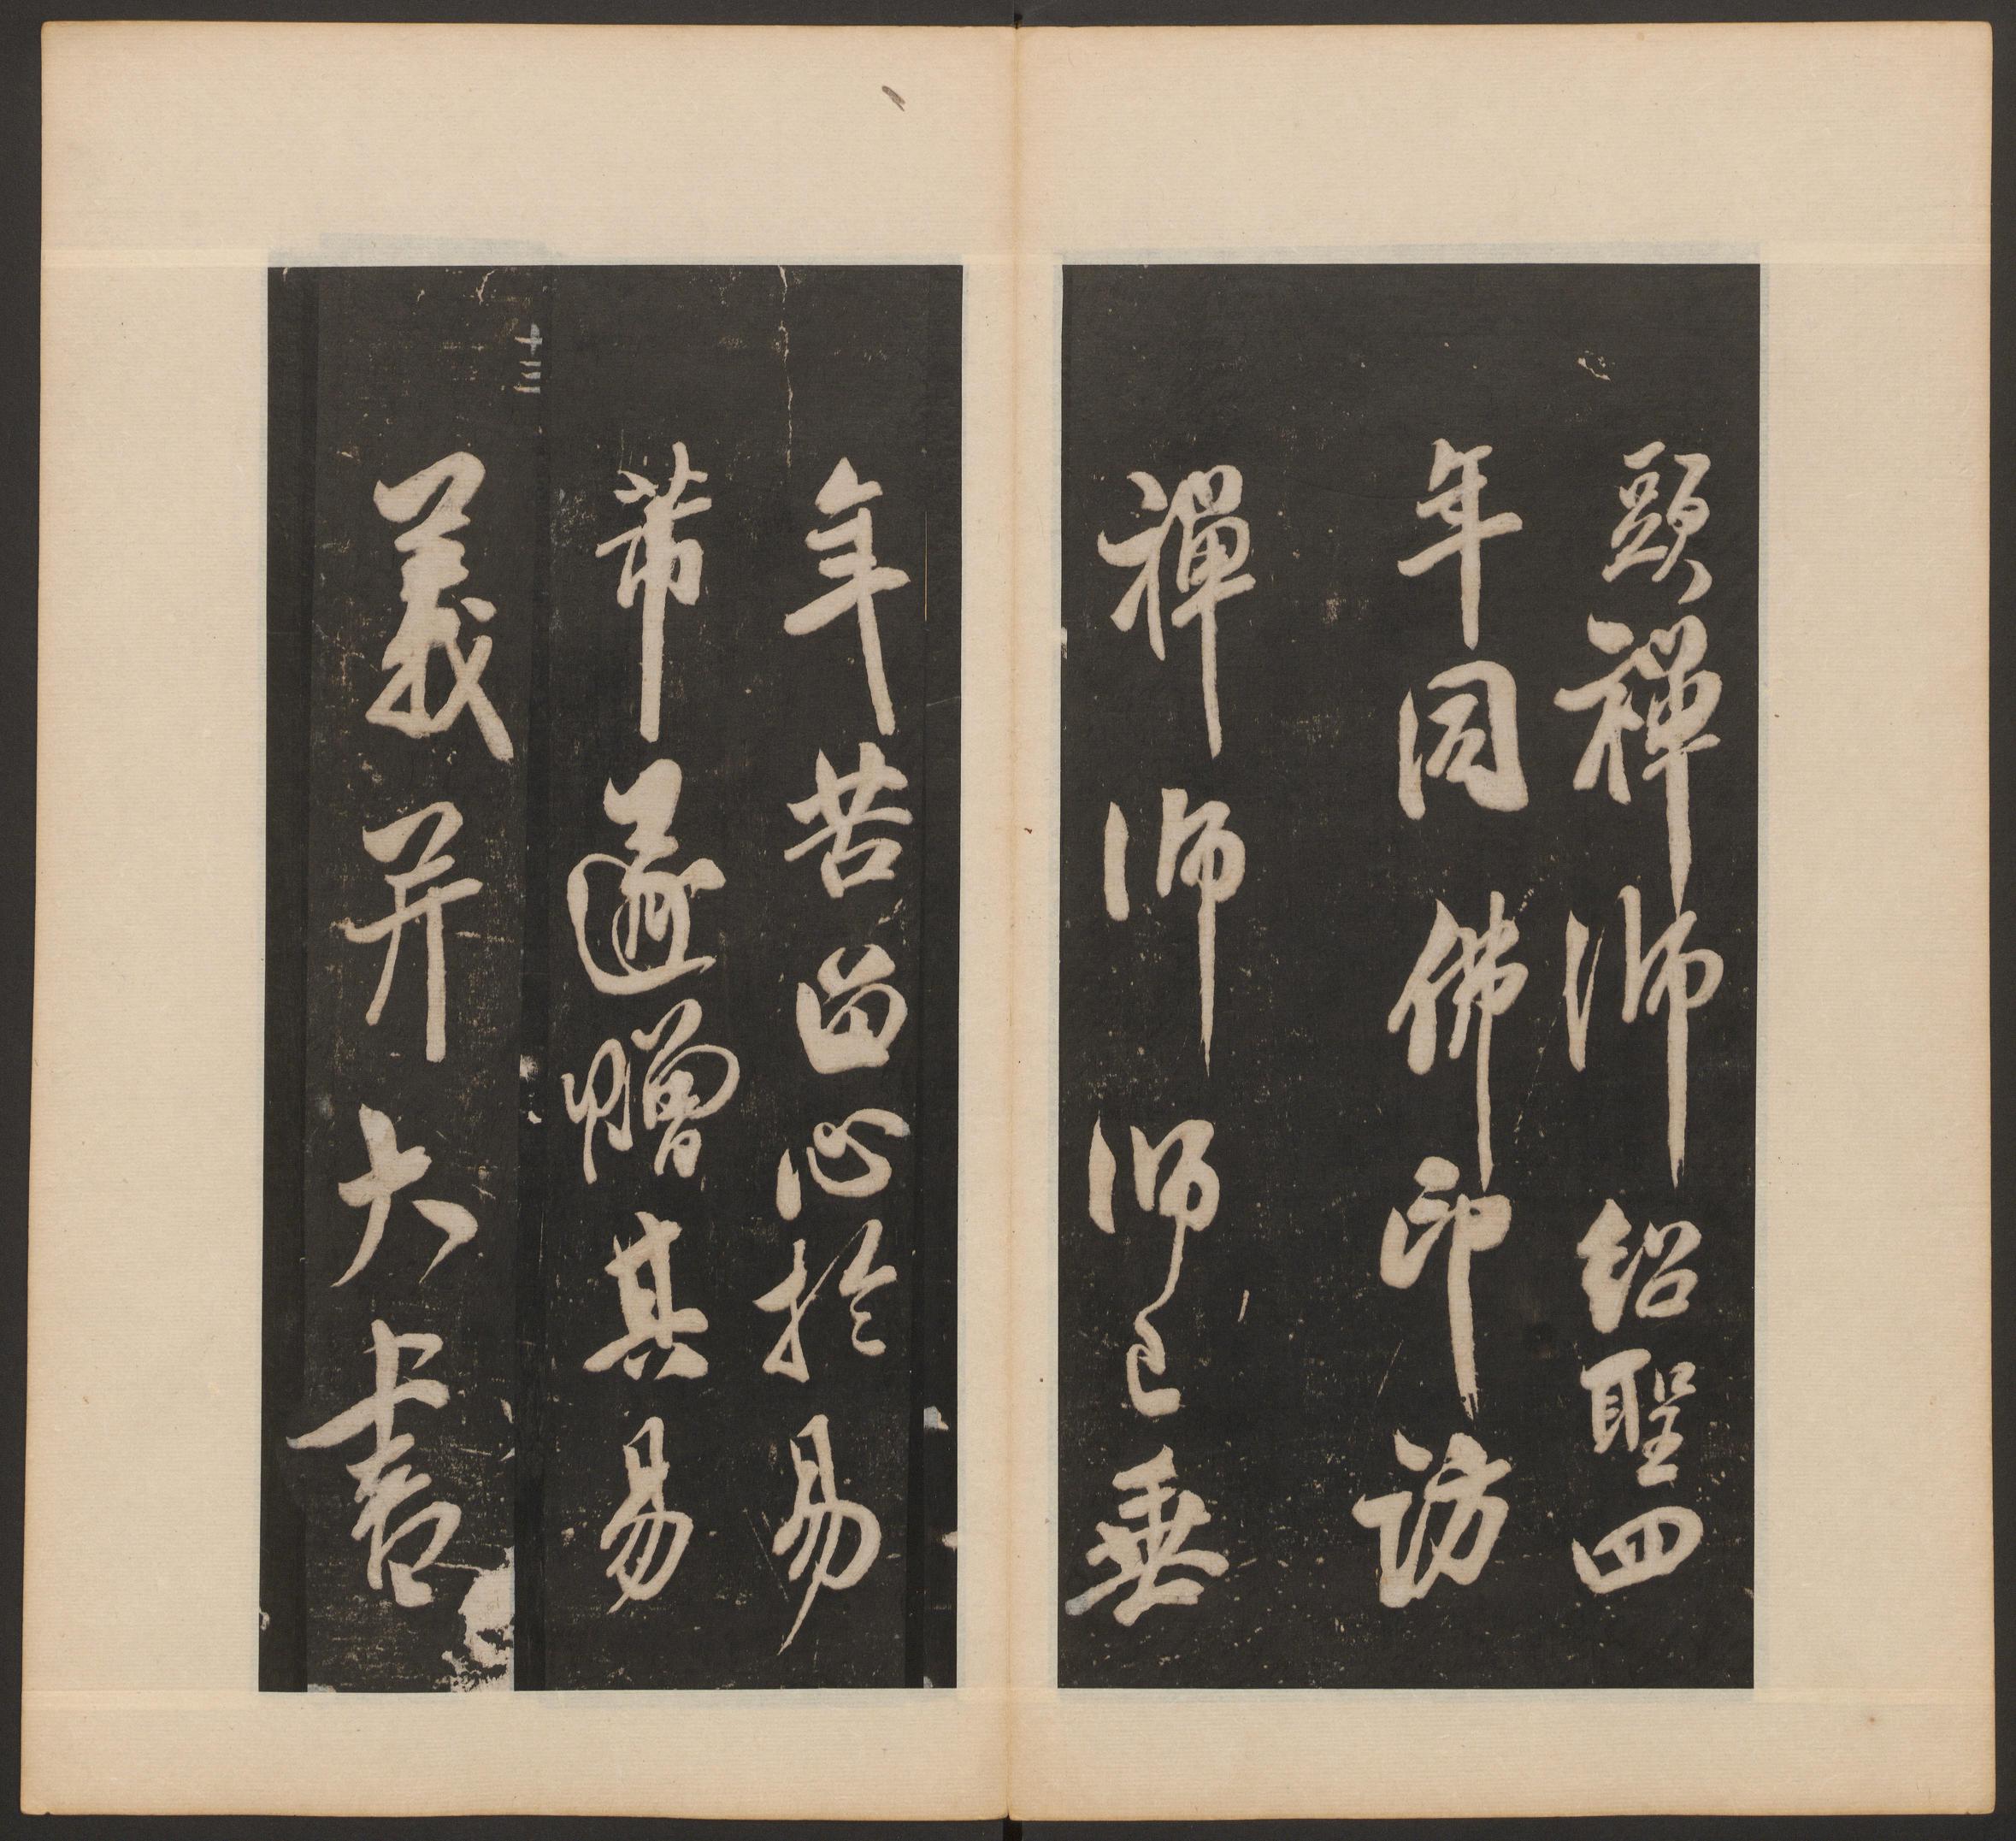 頭禪師紹聖四
年同佛印訪
禪師師已垂
年苦留心於易
芾遂贈其易
十三
義并大書